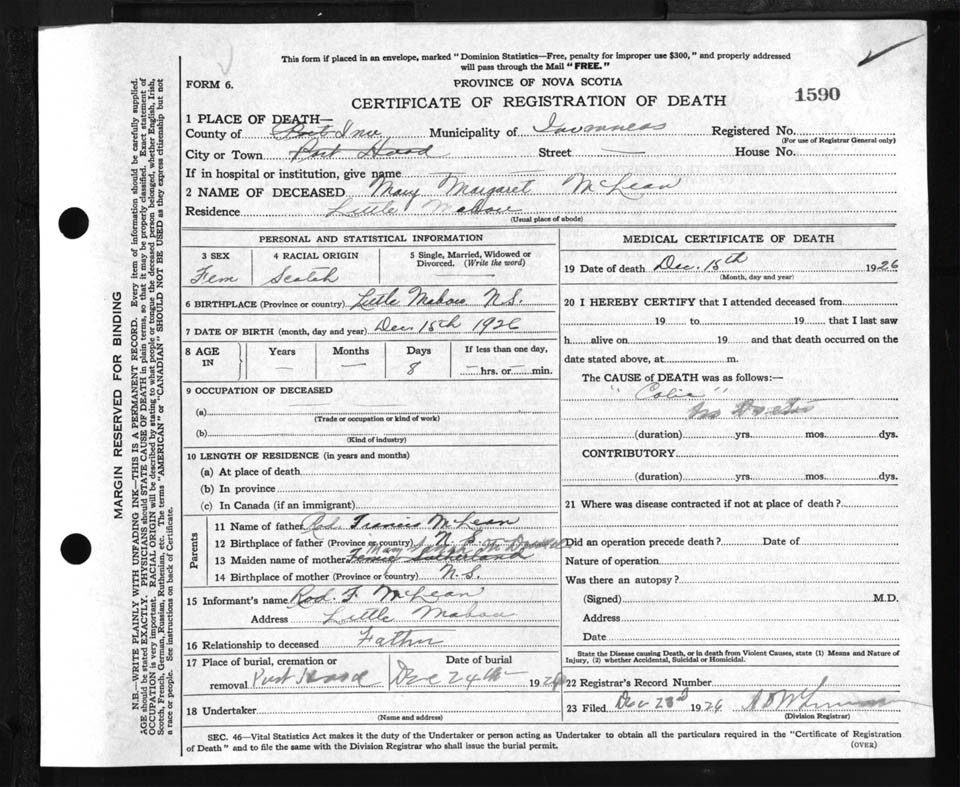 This form if placed in an envelope, marked "Dominion Statistics—Free, penalty for improper use $300," and properly addressed
will pass through the Mail "FREE."
FORM 6.
PROVINCE OF NOVA SCOTIA
CERTIFICATE OF REGISTRATION OF DEATH
1590
1 PLACE OF DEATH—
County of Port Inv Municipality of Inverness Registered No.
(For use of Registrar General only)
City or Town Port Hood Street — House No.
If in hospital or institution, give name
2 NAME OF DECEASED Mary Margaret McLean
Residence Little Mabou
(Usual place of abode)
PERSONAL AND STATISTICAL INFORMATION
3 SEX
Fem
4 RACIAL ORIGIN
Scotch
5 Single, Married, Widowed or
Divorced. (Write the word)
—
6 BIRTHPLACE (Province or country) Little Mabou N.S.
7 DATE OF BIRTH (month, day and year) Dec 15th 1926
8 AGE
IN
Years
—
Months
—
Days
8
If less than one day,
— hrs. or — min.
9 OCCUPATION OF DECEASED
(a)
(Trade or occupation or kind of work)
(b)
(Kind of industry)
10 LENGTH OF RESIDENCE (in years and months)
(a) At place of death
(b) In province
(c) In Canada (if an immigrant)
Parents
11 Name of father Rod. Francis McLean
12 Birthplace of father (Province or country) N.S.
13 Maiden name of mother Mary
14 Birthplace of mother (Province or country) N.S.
15 Informant's name Rod. F. McLean
Address Little Mabou
16 Relationship to deceased Father
17 Place of burial, cremation or
removal Port Hood
Date of burial
Dec 24th 1926
18 Undertaker
(Name and address)
MEDICAL CERTIFICATE OF DEATH
19 Date of death Dec. 15th 1926
(Month, day and year)
20 I HEREBY CERTIFY that I attended deceased from
19 to 19 that I last saw
h alive on 19 and that death occurred on the
date stated above, at m.
The CAUSE of DEATH was as follows:—
"Colic"
No Doctor
(duration) yrs. mos. dys.
CONTRIBUTORY
(duration) yrs. mos. dys.
21 Where was disease contracted if not at place of death?
Did an operation precede death? Date of
Nature of operation
Was there an autopsy?
(Signed) M.D.
Address
Date
State the Disease causing Death, or in death from Violent Causes, state (1) Means and Nature of
Injury, (2) whether Accidental, Suicidal or Homicidal.
22 Registrar's Record Number
23 Filed Dec 23rd 1926
(Division Registrar)
SEC. 46—Vital Statistics Act makes it the duty of the Undertaker or person acting as Undertaker to obtain all the particulars required in the "Certificate of Registration
of Death" and to file the same with the Division Registrar who shall issue the burial permit.
(OVER)
MARGIN RESERVED FOR BINDING
N.B.—WRITE PLAINLY WITH UNFADING INK—THIS IS A PERMANENT RECORD. Every item of information should be carefully supplied.
AGE should be stated EXACTLY. PHYSICIANS should STATE CAUSE OF DEATH in plain terms, so that it may be properly classified. Exact statement of
OCCUPATION is very important. RACIAL ORIGIN will be described by stating to what people or tongue the deceased person belonged, whether English, Irish,
Scotch, French, German, Russian, Ruthenian, etc. The terms "AMERICAN" or "CANADIAN" SHOULD NOT BE USED as they express citizenship but not
a race or people. See instructions on back of Certificate.